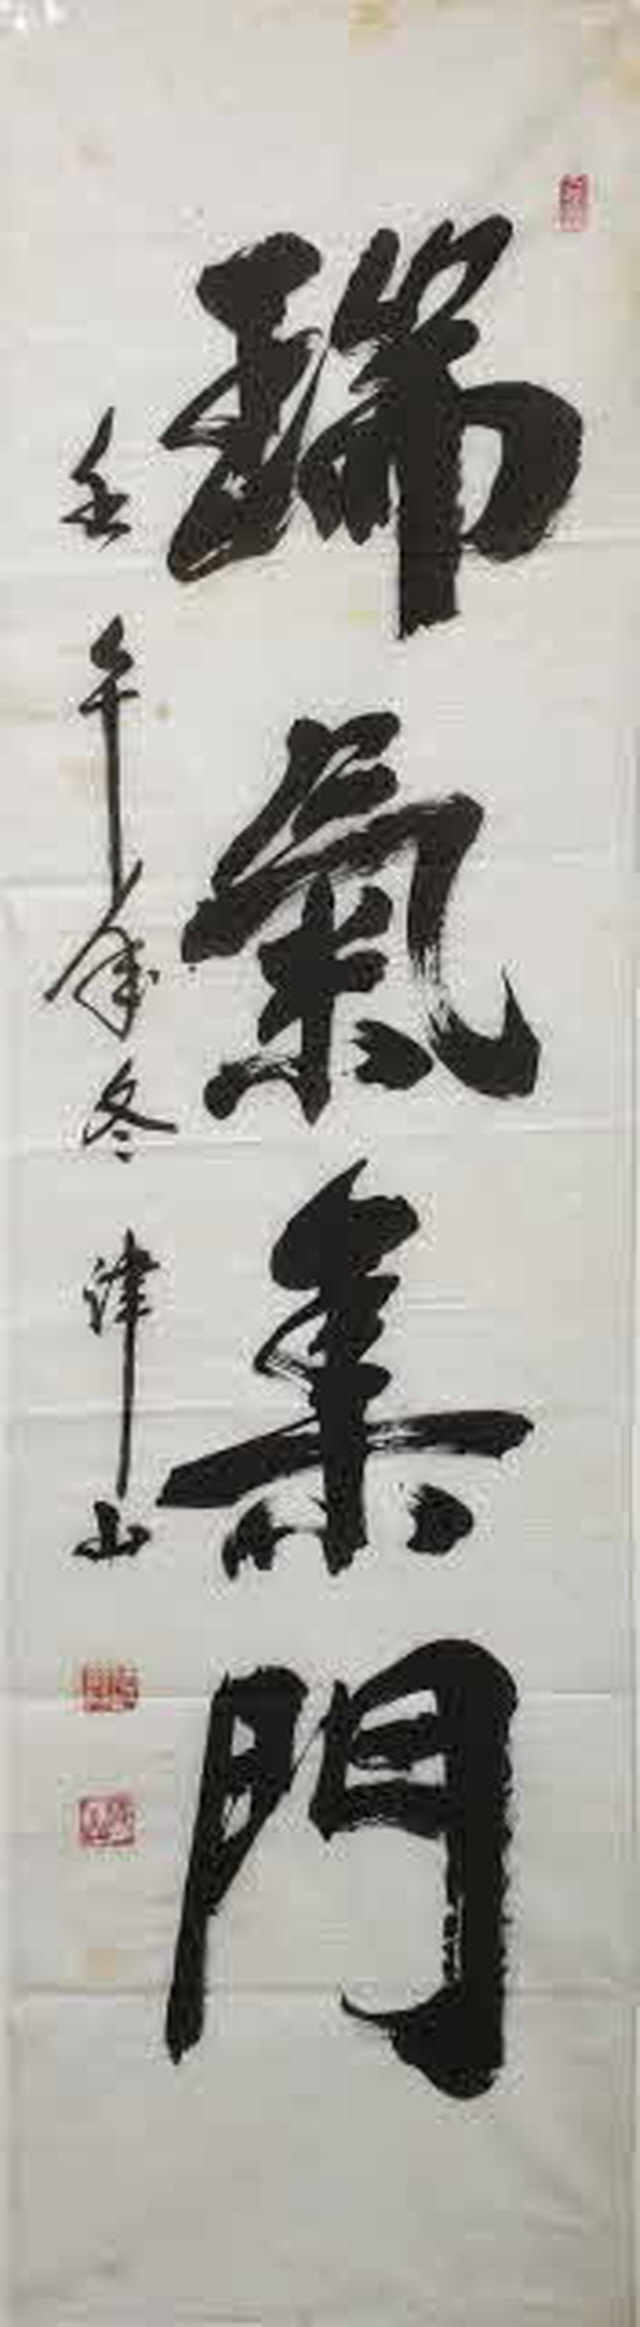 瑞氣集門
壬午年冬 津山